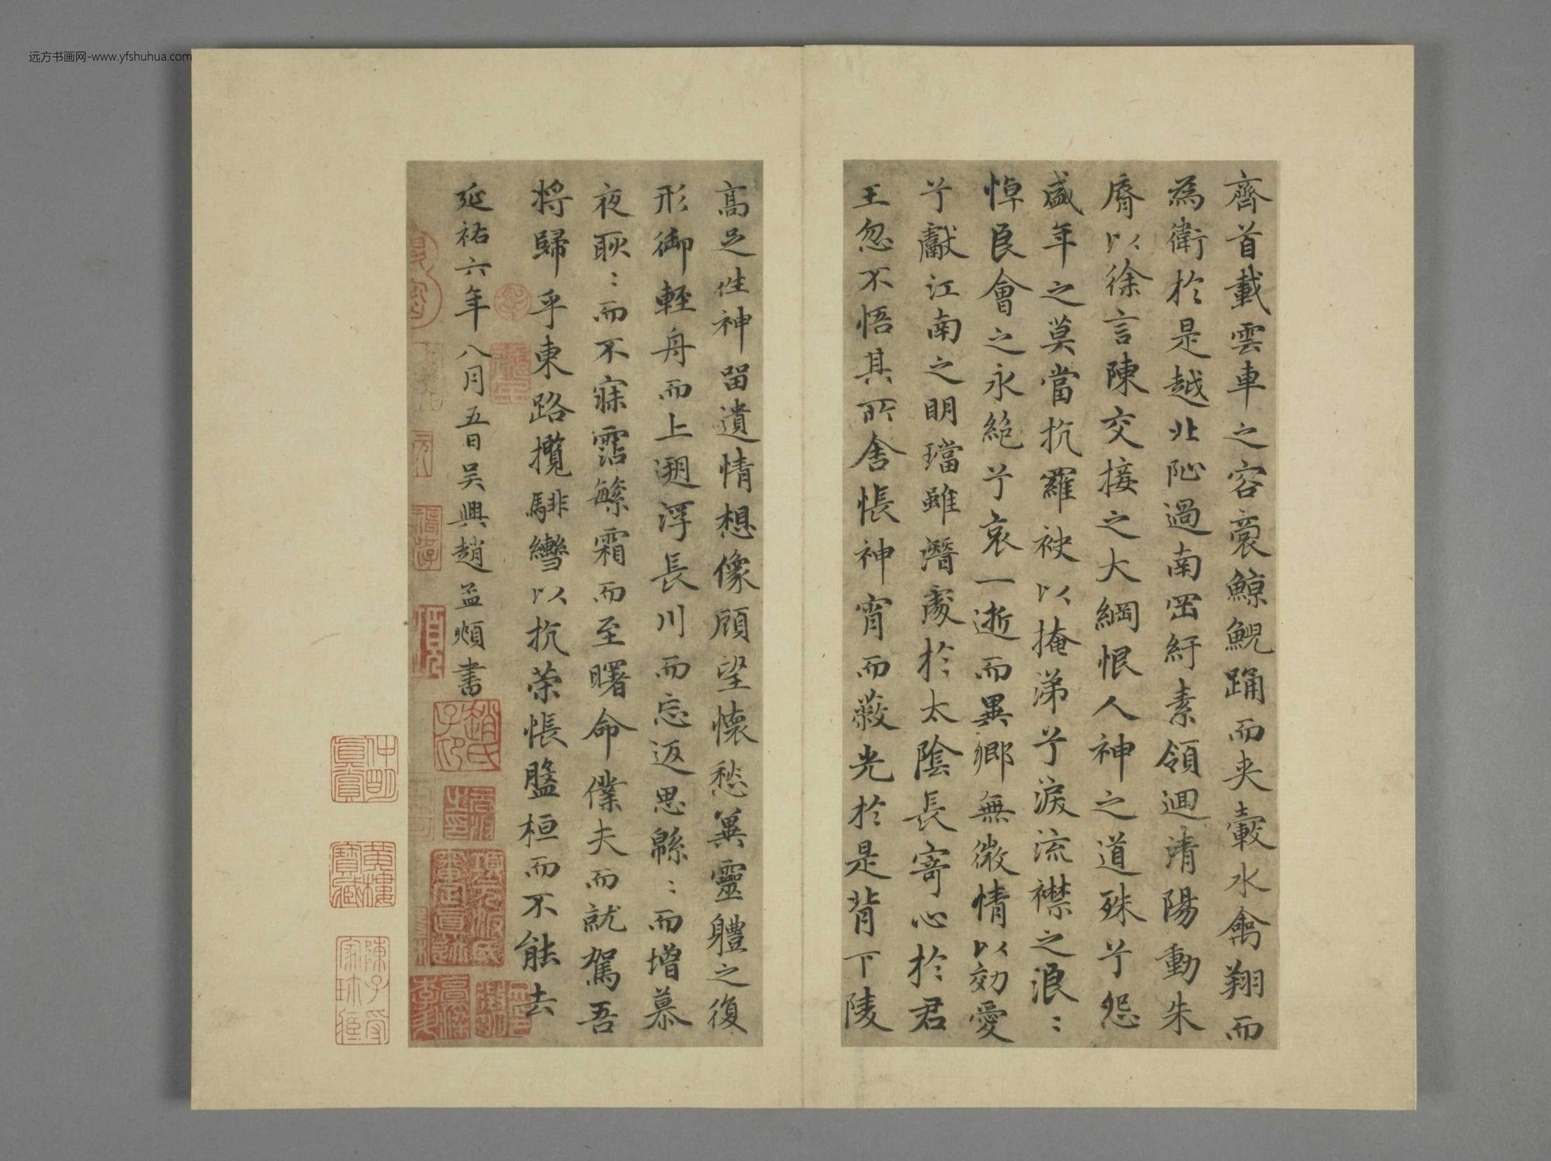 远方书画网-www.yfshuhua.com
齊首載雲車之容裔鯨鯢踊而夾轂水禽翔而
為衛於是越北沚過南岡紆素領迴清陽動朱
脣以徐言陳交接之大綱恨人神之道殊兮怨
盛年之莫當抗羅袂以掩涕兮淚流襟之浪〻
悼良會之永絕兮哀一逝而異鄉無微情以効愛
兮獻江南之明璫雖潛處於太陰長寄心於君
王忽不悟其所舍悵神宵而蔽光於是背下陵
高足往神留遺情想像顧望懷愁冀靈體之復
形御輕舟而上遡浮長川而忘返思緜〻而增慕
夜耿〻而不寐霑繁霜而至曙命僕夫而就駕吾
將歸乎東路攬騑轡以抗策悵盤桓而不能去
延祐六年八月五日吳興趙孟頫書
趙氏子昂